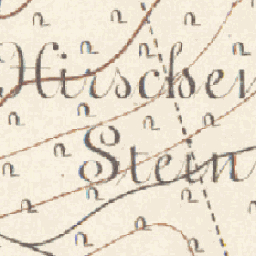 Hirschen
Stein